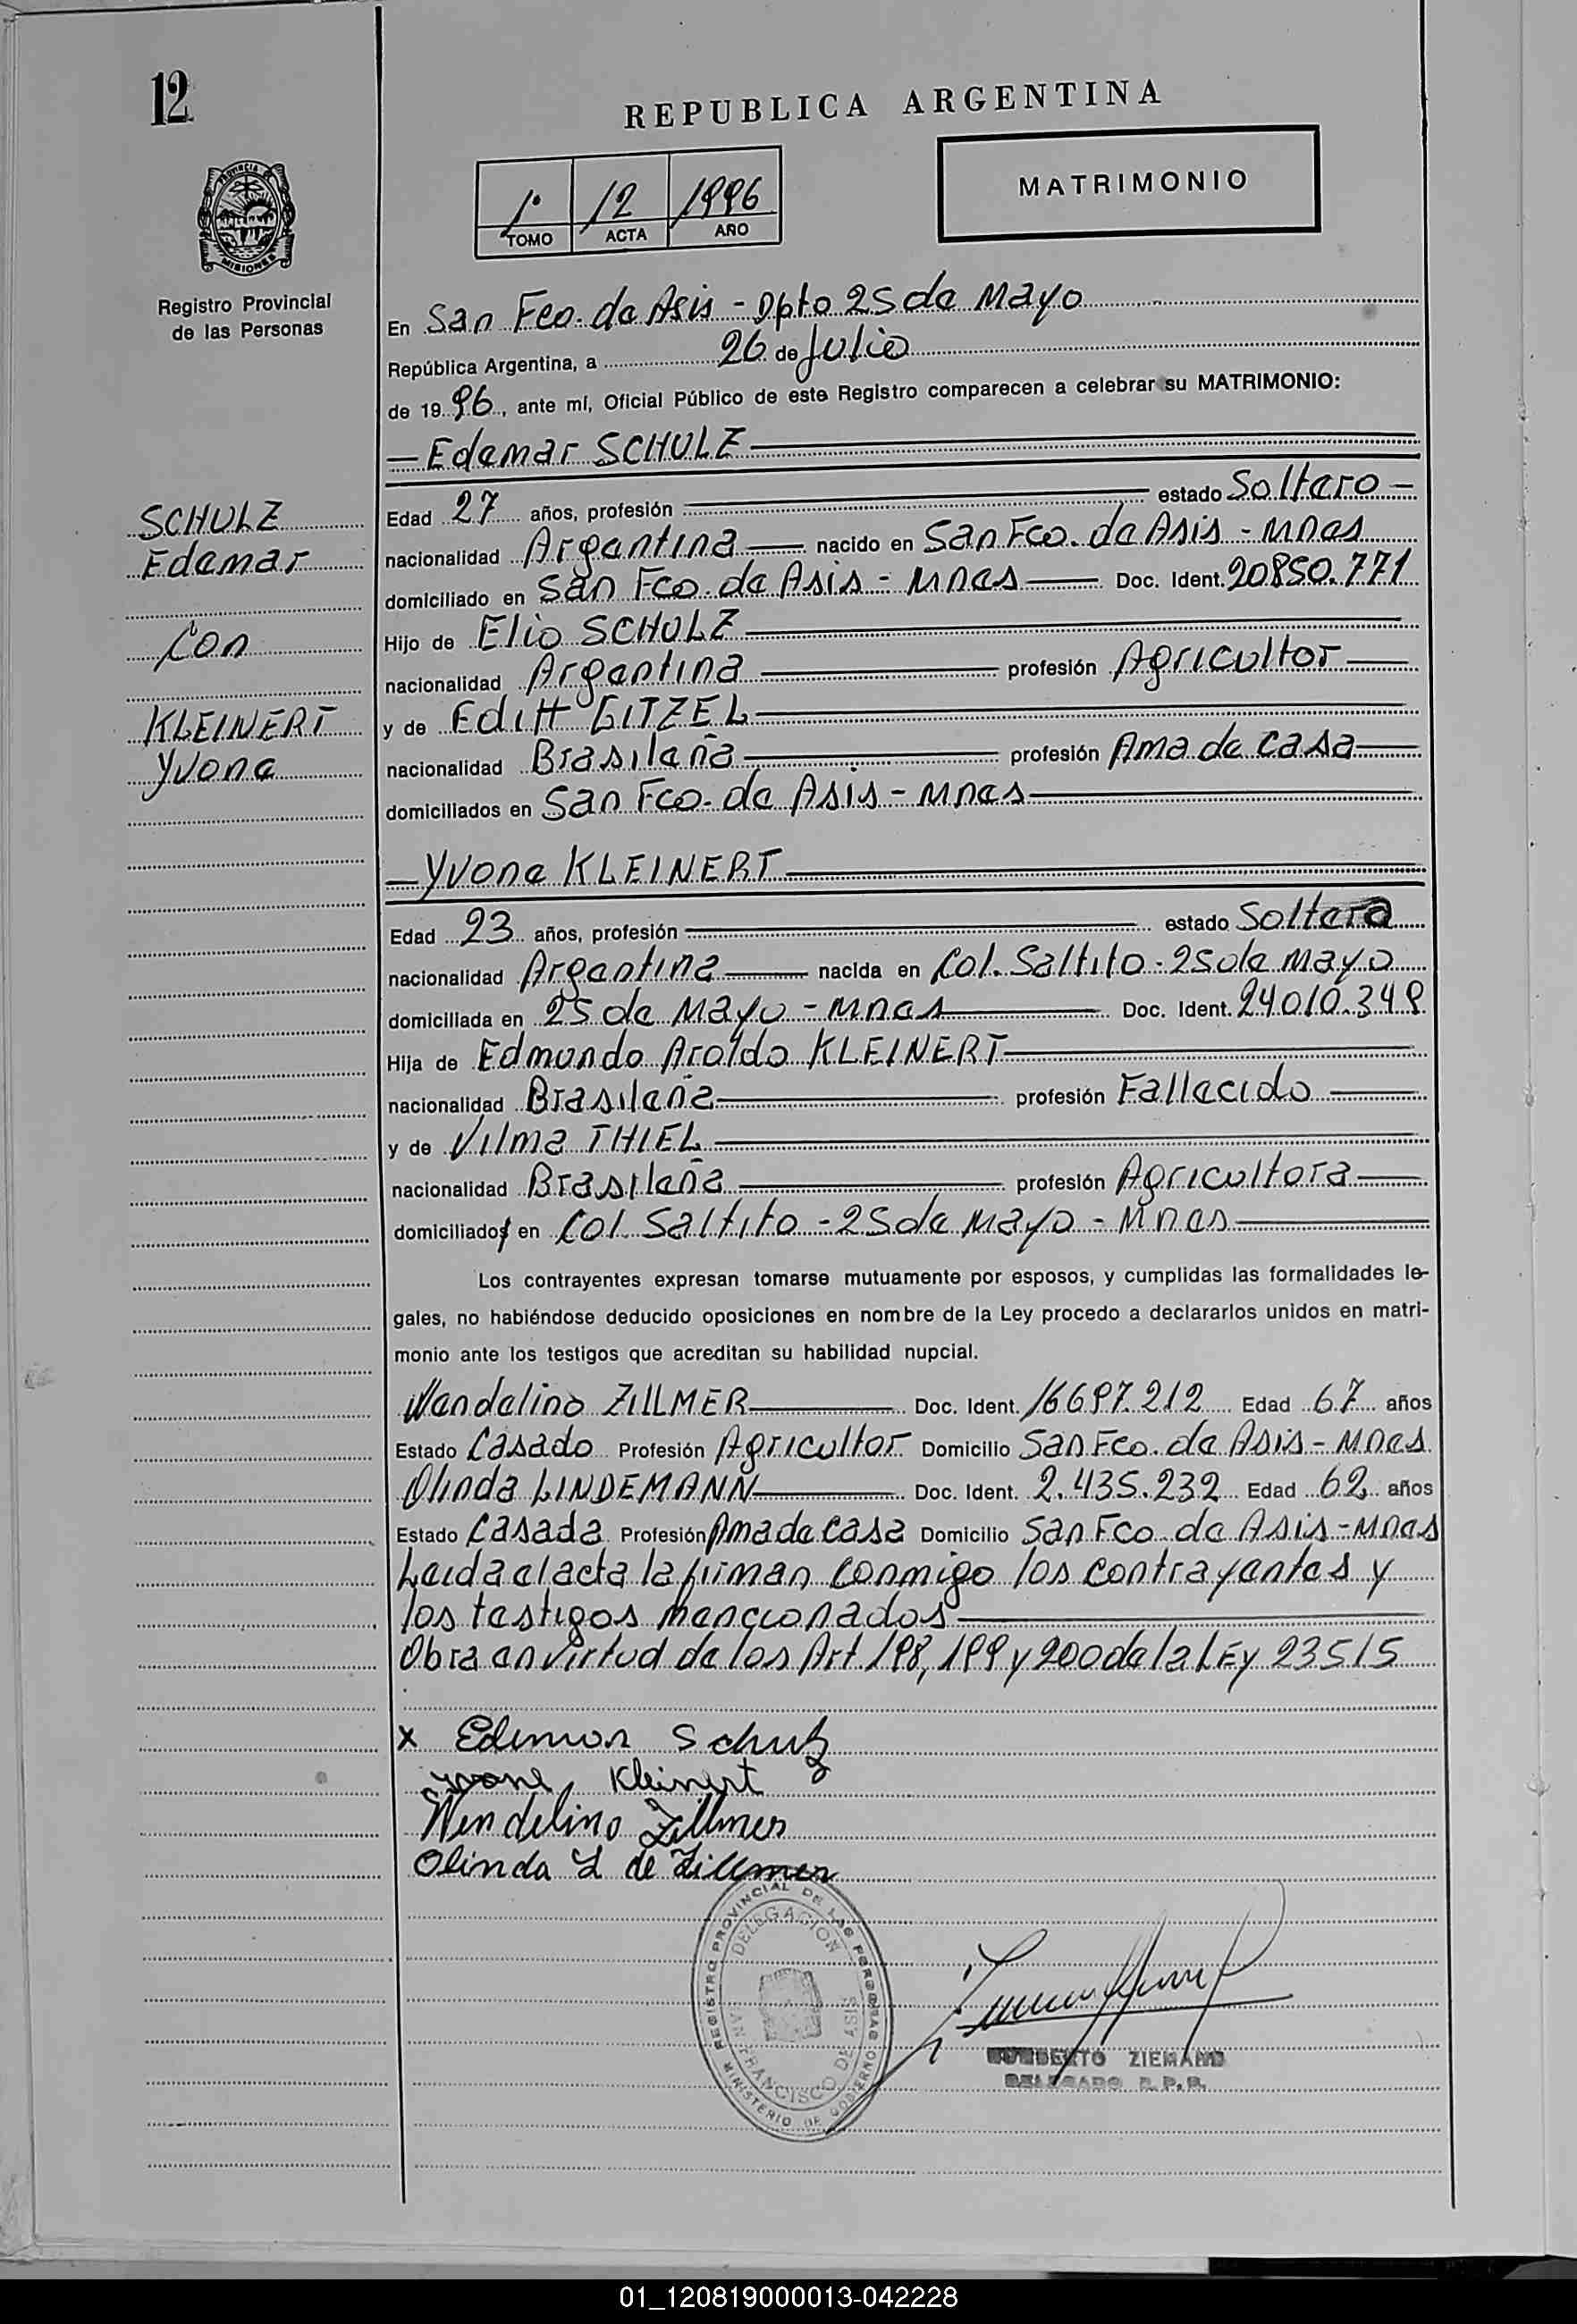 12
REPUBLICA ARGENTINA
MATRIMONIO
1º 12 1996
TOMO ACTA AÑO
PROVINCIA DE
MISIONES
Registro Provincial
de las Personas
En San Fco. de Asis - Dpto 25 de Mayo
República Argentina, a 26 de Julio
de 1996, ante mí, Oficial Público de este Registro comparecen a celebrar su MATRIMONIO:
— Edemar SCHULZ
Edad 27 años, profesión estado Soltero —
nacionalidad Argentina — nacido en San Fco. de Asis - Mnes
domiciliado en San Fco. de Asis - Mnes — Doc. Ident. 20850.771
Hijo de Elio SCHULZ
nacionalidad Argentina profesión Agricultor —
y de Editt GITZEL
nacionalidad Brasileña profesión Ama de casa —
domiciliados en San Fco. de Asis - Mnes
SCHULZ
Edemar
Con
KLEINERT
Yvone
— Yvone KLEINERT
Edad 23 años, profesión estado Soltera
nacionalidad Argentina — nacida en Col. Saltito - 25 de Mayo
domiciliada en 25 de Mayo - Mnes Doc. Ident. 24010.349
Hija de Edmundo Aroldo KLEINERT
nacionalidad Brasileña profesión Fallecido —
y de Vilma THIEL
nacionalidad Brasileña profesión Agricultora —
domiciliados en Col. Saltito - 25 de Mayo - Mnes
Los contrayentes expresan tomarse mutuamente por esposos, y cumplidas las formalidades le-
gales, no habiéndose deducido oposiciones en nombre de la Ley procedo a declararlos unidos en matri-
monio ante los testigos que acreditan su habilidad nupcial.
Wendelino ZILLMER Doc. Ident. 16697.212 Edad 67 años
Estado Casado Profesión Agricultor Domicilio San Fco. de Asis - Mnes
Olinda LINDEMANN Doc. Ident. 2.435.232 Edad 62 años
Estado Casada Profesión Ama de casa Domicilio San Fco de Asis - Mnes
Leida el acta la firman conmigo los contrayentes y
los testigos mencionados
Obra en virtud de los Art 198, 199 y 200 de la LEy 23515
x Edemar Schulz
yvone Kleinert
Wendelino Zillmer
Olinda L de Zillmer
REGISTRO PROVINCIAL DE LAS PERSONAS
DELEGACION
SAN FRANCISCO DE ASIS
MINISTERIO DE GOBIERNO
ZIEMANN
DELEGADO R. P. P.
01_120819000013-042228